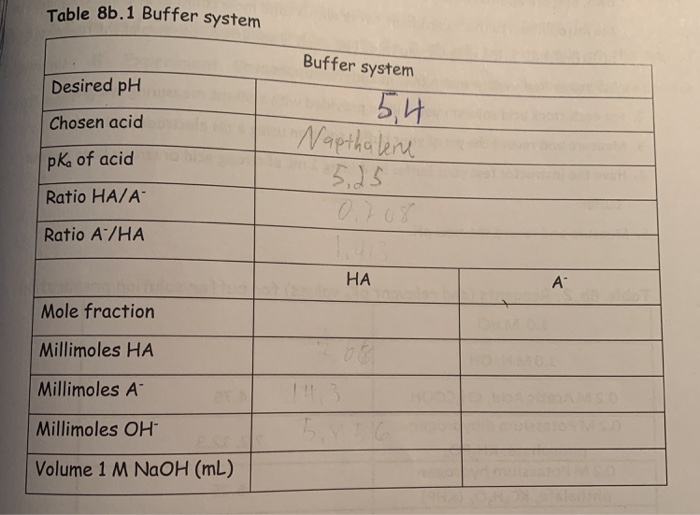 Table 8b.1 Buffer system
Buffer system
Desired pH 5,4
Chosen acid Napthalene
pKa of acid 5.25
Ratio HA/A- 0.708
Ratio A-/HA 1.413
HA A-
Mole fraction
Millimoles HA
Millimoles A- 14.3
Millimoles OH-
Volume 1 M NaOH (mL)